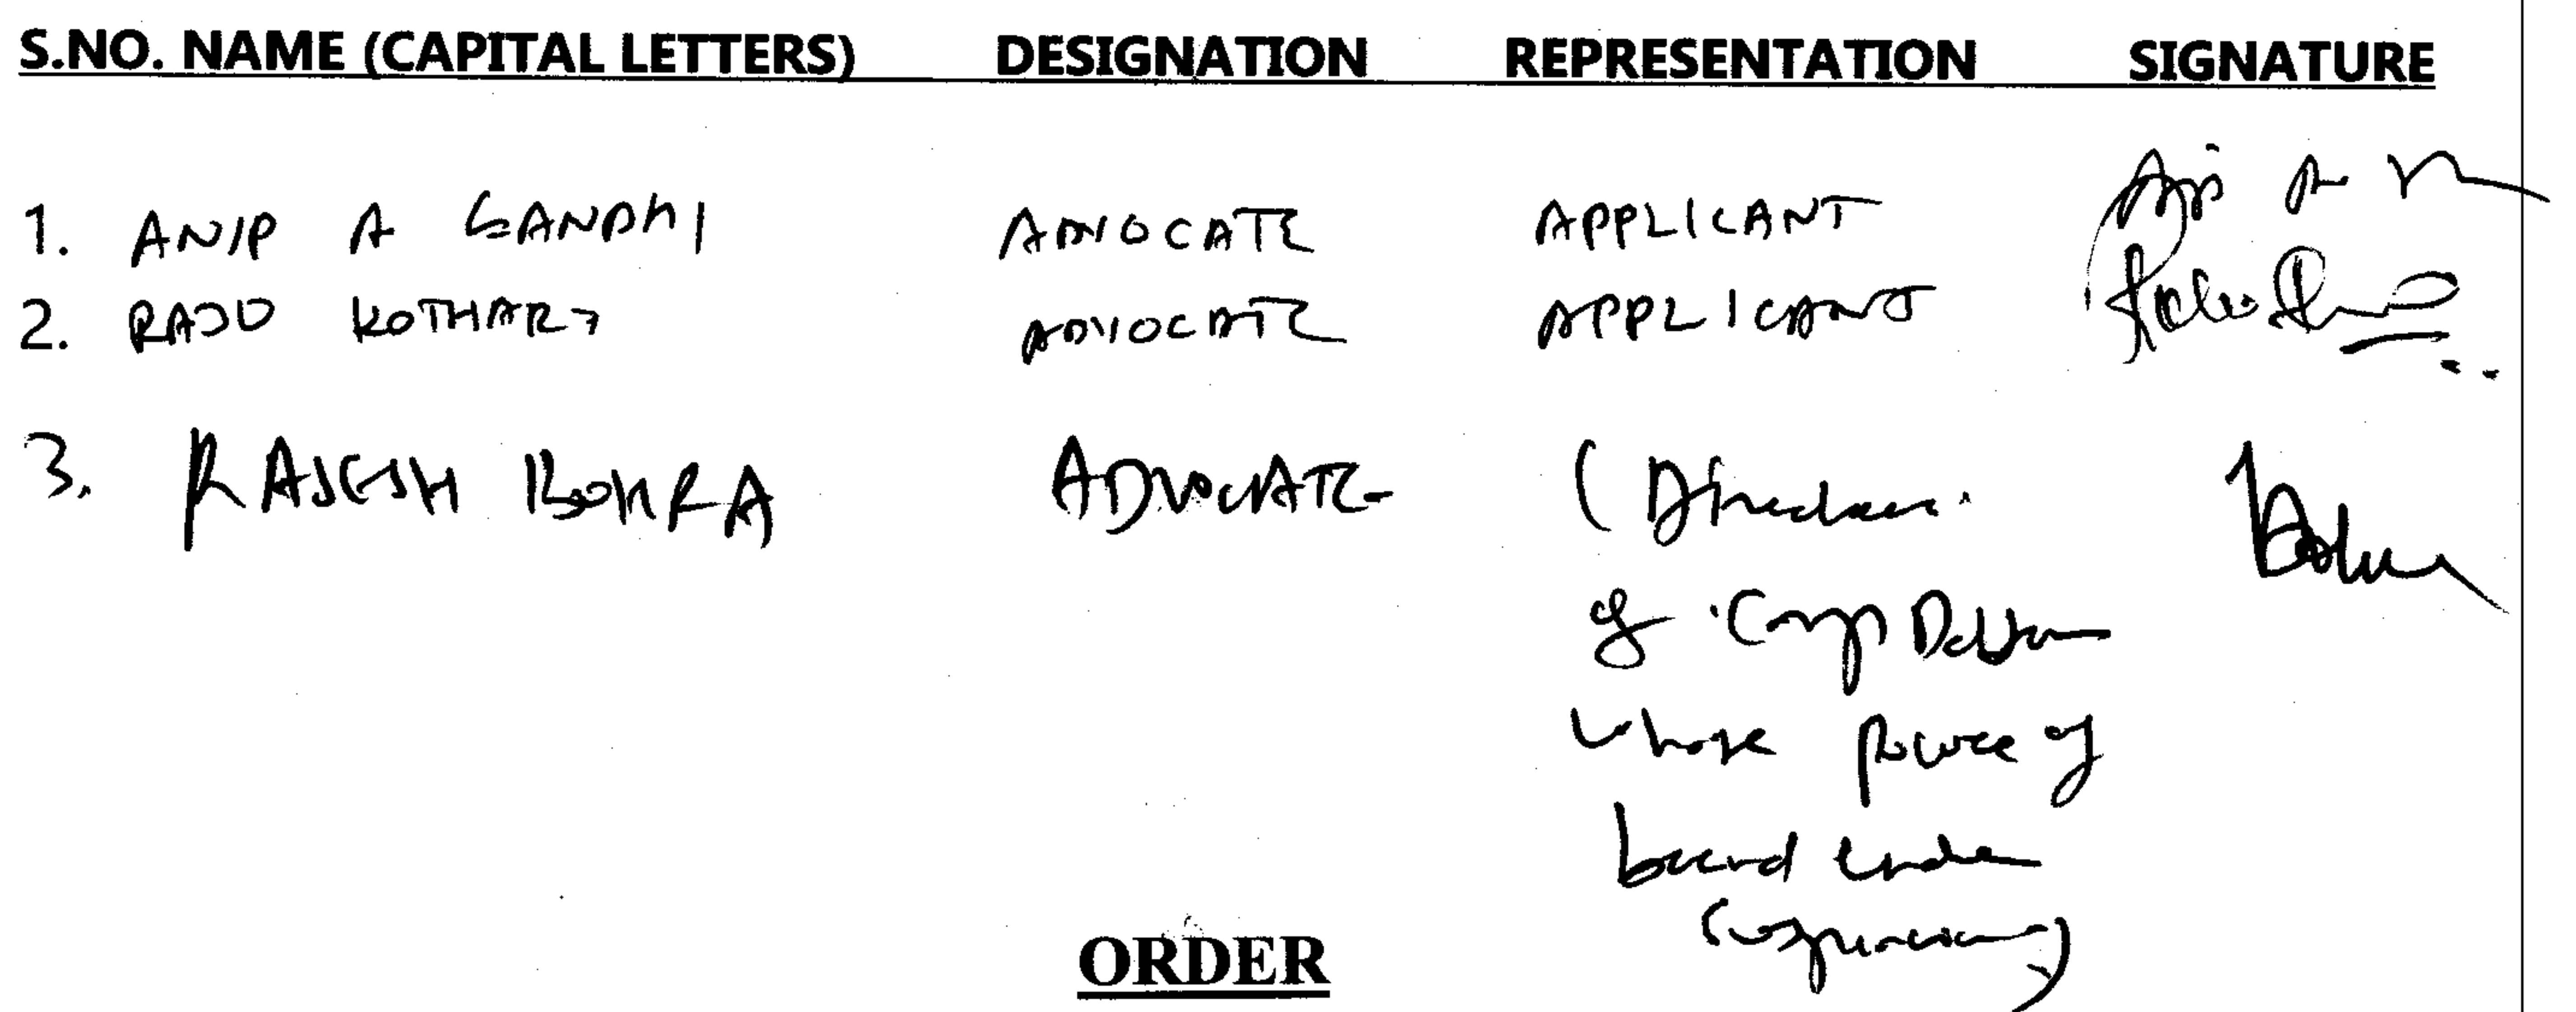 S.NO. NAME (CAPITAL LETTERS) DESIGNATION REPRESENTATION SIGNATURE
1. ANIP A GANDHI ADVOCATE APPLICANT
2. RAJU KOTHARI ADVOCATE APPLICANT
3. RAJESH BOHRA ADVOCATE (Director
of Corp Debtor
whose power of
board under
suspension)
ORDER